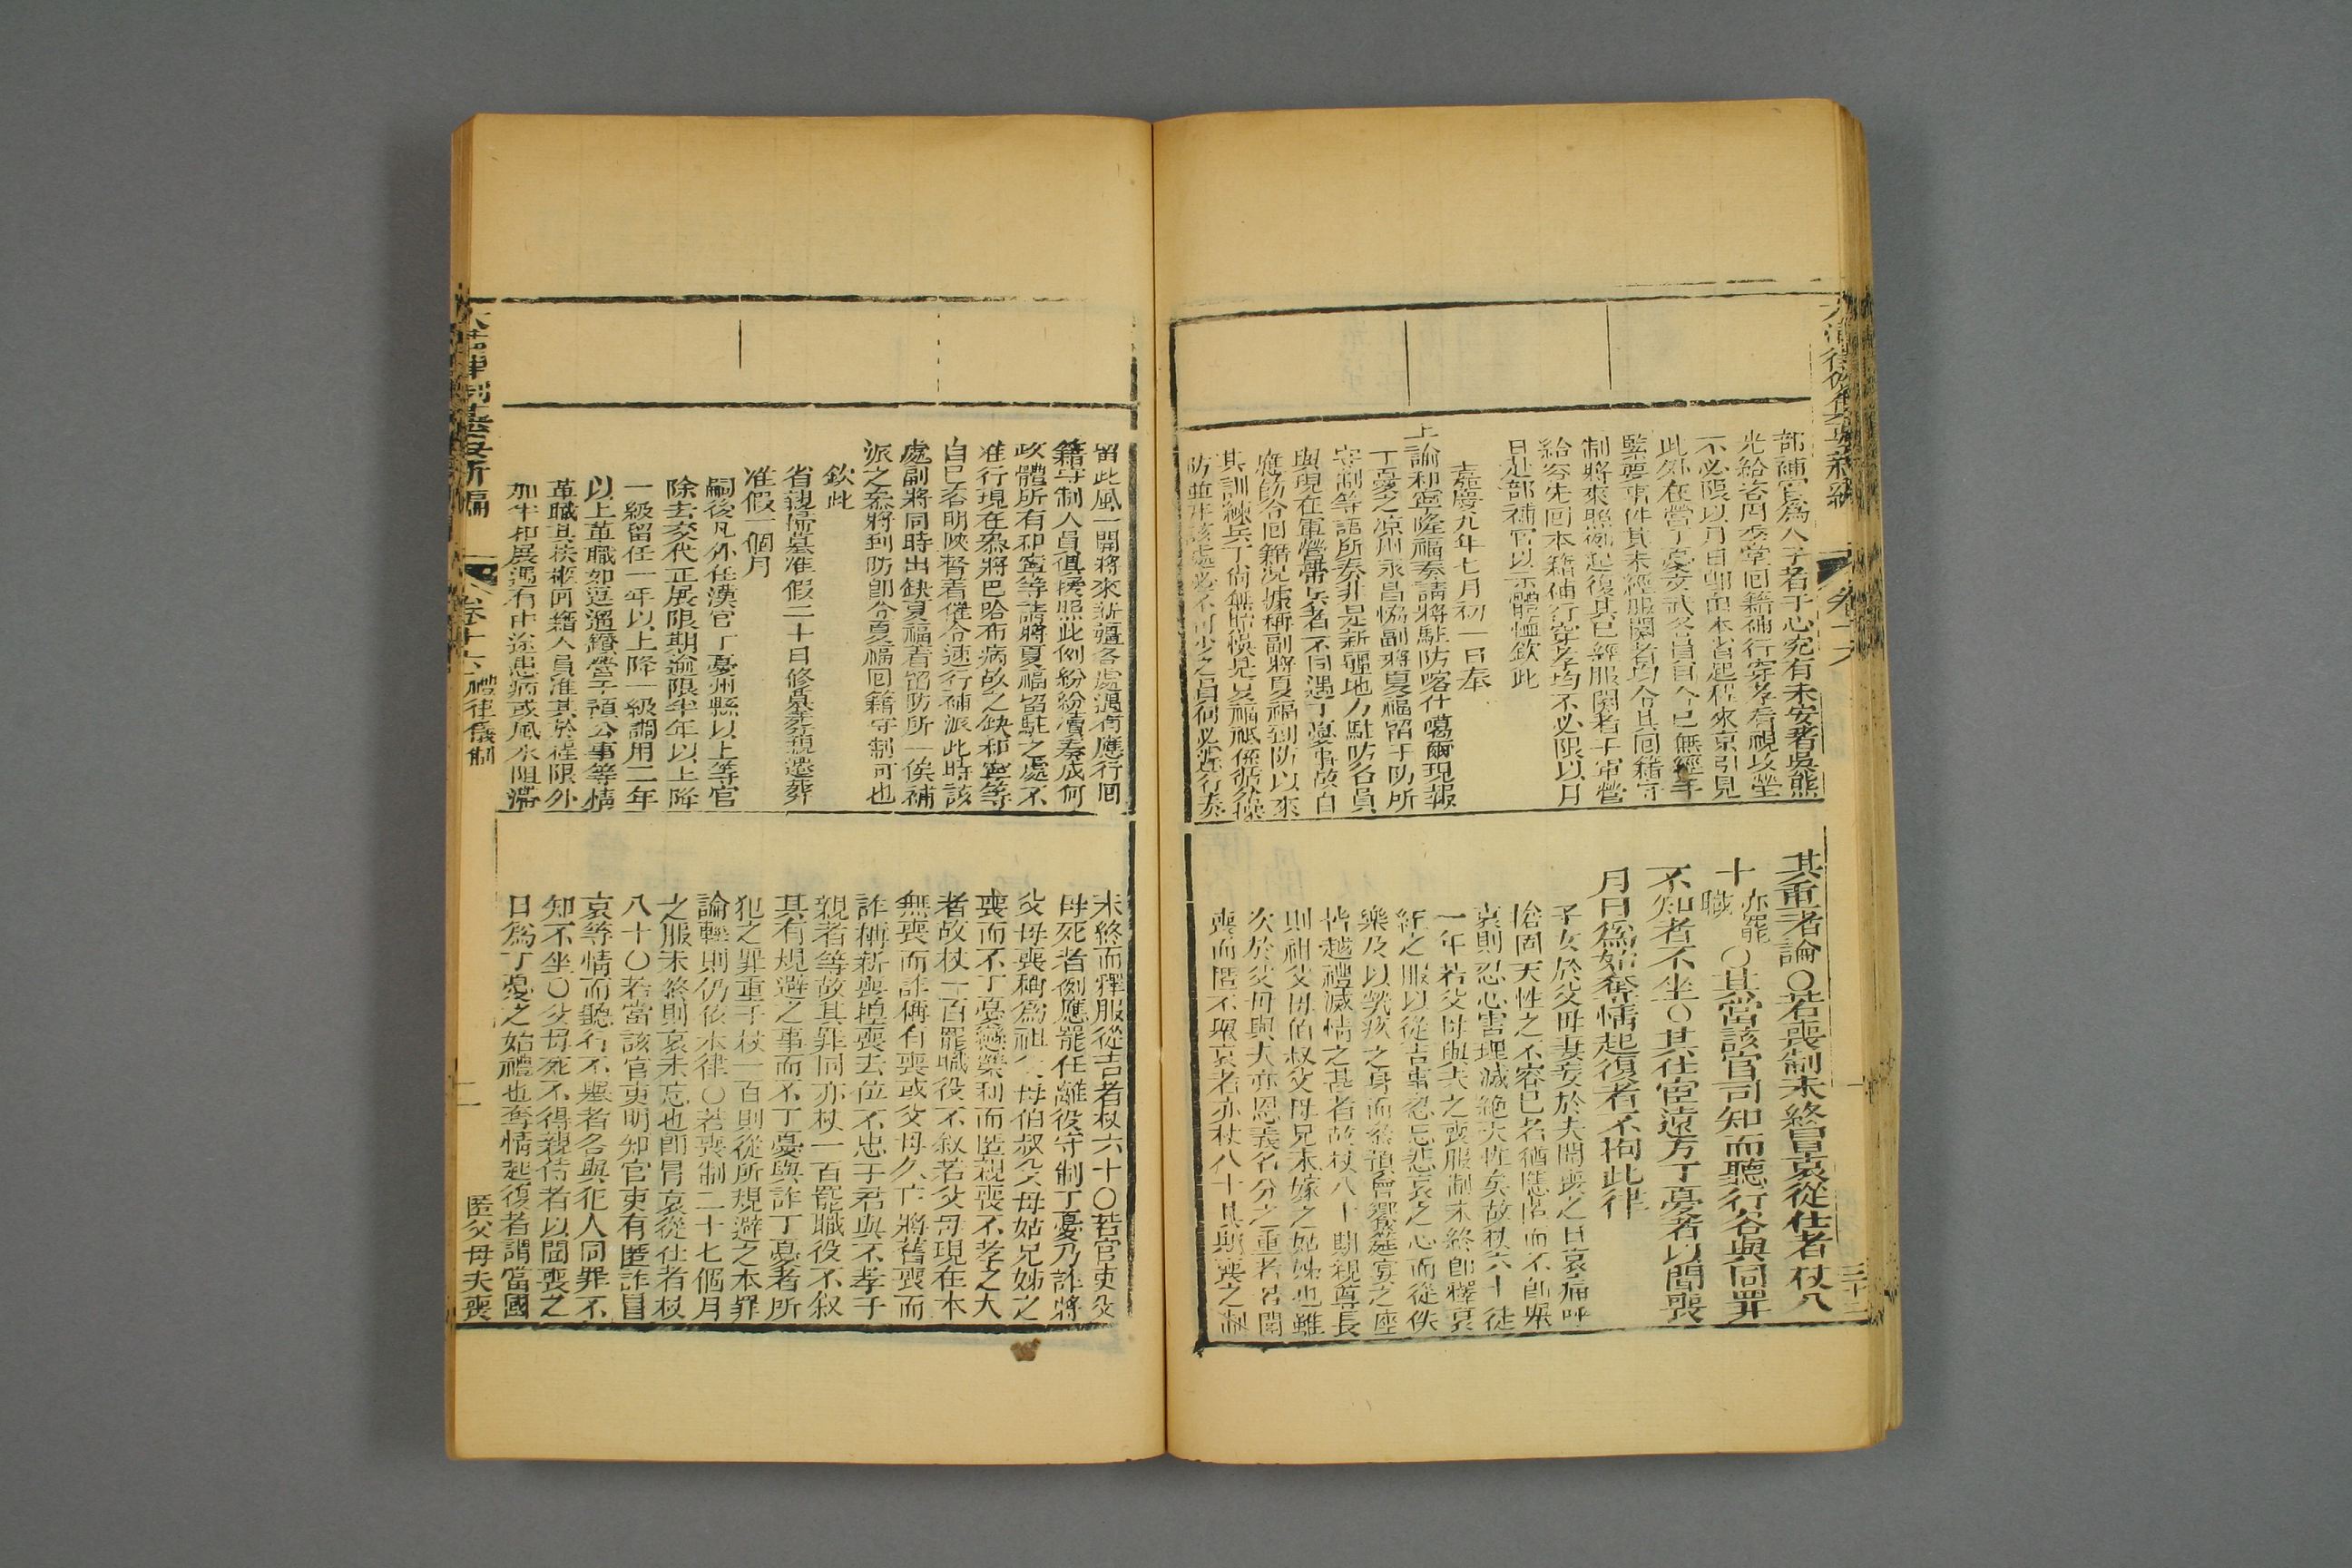 大清律例彙纂新編
卷十六
三十二
部補官為人子者于心究有未安著吳熊
光給咨回秀堂回籍補行穿孝看視以塋
不必限以月日即由本省起程來京引見
此外在營丁憂文武各員自今已無經手
緊要事件其未經服闋者均令其回籍守
制將來照例起復其已經服闋者于軍營
給咨先回本籍補行穿孝均不必限以月
日赴部補官以示體恤欽此
嘉慶九年七月初一日奉
上諭和寧隆福奏請將駐防喀什噶爾現報
丁憂之凉州永昌協副將夏福留于防所
守制等語所奏非是新疆地方駐防各員
與現在軍營帶兵者不同遇丁憂事故自
應飭令回籍況據稱副將夏福到防以來
其訓練兵丁尚無貽悞是夏福祗係循分操
防並非該處必不可少之員何必遽行奏
其重者論○若喪制未終冒哀從仕者杖八
十亦罷職○其當該官司知而聽行各與同罪
不知者不坐○其仕宦遠方丁憂者以聞喪
月日為始奪情起復者不拘此律
子女於父母妻妾於夫聞喪之日哀痛呼
搶固天性之不容已者猶隱匿而不卽舉
哀則忍心害理滅絶天性矣故杖六十徒
一年若父母與夫之喪服制未終卽釋哀
絰之服以從吉事忍忘悲哀之心而從佚
樂及以煢疚之身而參預會饗筵宴之座
皆越禮滅情之甚者故杖八十期親尊長
則祖父母伯叔父母兄未嫁之姑姊也雖
次於父母與夫亦恩義名分之重者若聞
喪而匿不舉哀者亦杖八十其期喪之制
留此風一開將來新疆各處遇有應行回
籍守制人員俱援照此例紛紛瀆奏成何
政體所有和寧等請將夏福留駐之處不
准行現在叅將巴哈布病故之缺和寧等
自已咨明陝督着催令速行補派此時該
處副將同時出缺夏福着留防所一俟補
派之叅將到防卽令夏福回籍守制可也
欽此
省親掃墓准假二十日修墓葬親遷葬
准假一個月
嗣後凡外任漢官丁憂州縣以上等官
除去交代正展限期逾限半年以上降
一級留任一年以上降一級調用二年
以上革職如逗遛鑽營干預公事等情
革職其扶櫬回籍人員准其於程限外
加半扣展遇有中途患病或風水阻滯
未終而釋服從吉者杖六十○若官吏父
母死者例應罷任離役守制丁憂乃詐將
父母喪稱為祖父母伯叔父母姑兄姊之
喪而不丁憂戀榮利而匿親喪不孝之大
者故杖一百罷職役不敘若父母現在本
無喪而詐稱有喪或父母久亡將舊喪而
詐稱新喪揑喪去位不忠于君與不孝子
親者等故其罪同亦杖一百罷職役不敘
其有規避之事而不丁憂與詐丁憂者所
犯之罪重于杖一百則從所規避之本罪
論輕則仍依本律○若喪制二十七個月
之服未終則哀未忘也卽冒哀從仕者杖
八十○若當該官吏明知官吏有匿詐冒
哀等情而聽行不舉者各與犯人同罪不
知不坐○父母死不得親侍者以聞喪之
日為丁憂之始禮也奪情起復者謂當國
大清律例彙纂新編
卷十六 禮律儀制
匿父母夫喪